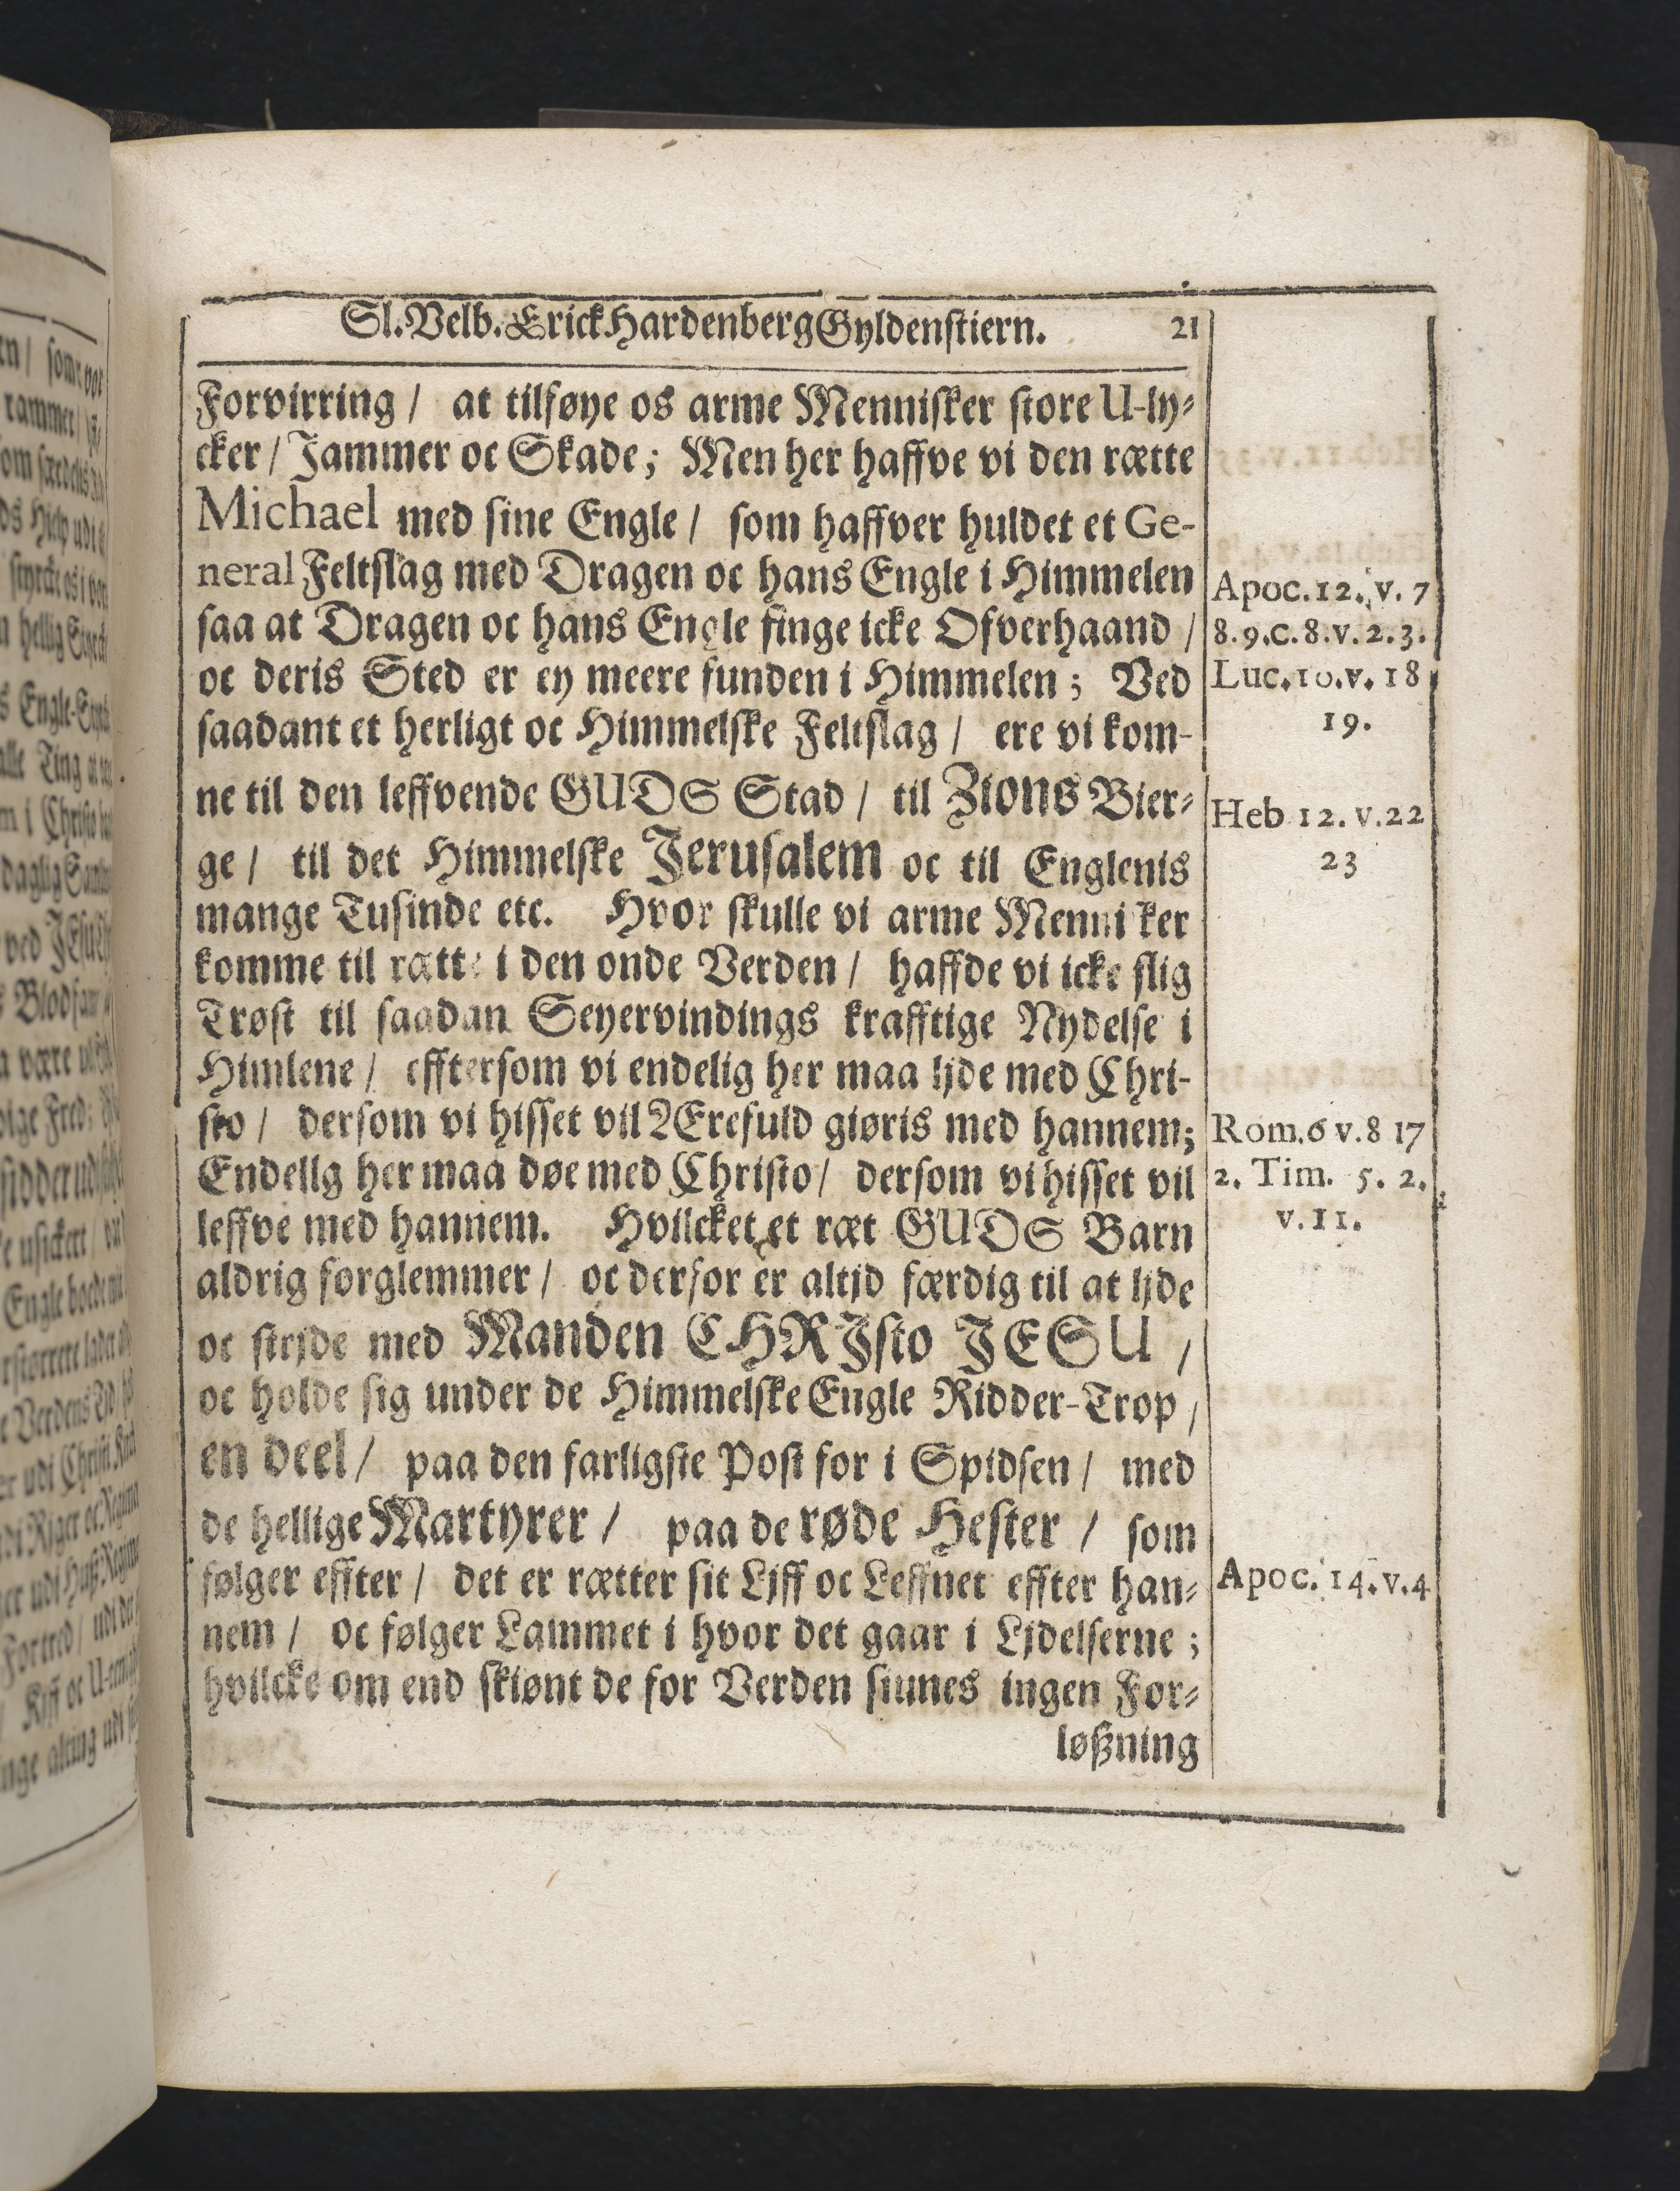 Sl. Velb. Erick Hardenberg Gyldenstiern. 21
Forvirring / at tilføye os arme Mennisker store U-ly-
cker / Jammer oc Skade; Men her haffve vi den rætte
Michael med sine Engle / som haffver huldet et Ge-
neral Feltslag med Dragen oc hans Engle i Himmelen
saa at Dragen oc hans Engle finge icke Ofverhaand /
oc deris Sted er ey meere funden i Himmelen; Ved
saadant et herligt oc Himmelske Feltslag / ere vi kom-
ne til den leffvende GUDS Stad / til Zions Bier-
ge / til det Himmelske Jerusalem oc til Englenis
mange Tusinde etc. Hvor skulle vi arme Menni ker
komme til rætte i den onde Verden / haffde vi icke slig
Trøst til saadan Seyervindings krafftige Nydelse i
Himlene / efftersom vi endelig her maa lide med Chri-
sto / dersom vi hisset vil Ærefuld giøris med hannem;
Endelig her maa døe med Christo / dersom vi hisset vil
leffve med hannem. Hvilcket et ræt GUDS Barn
aldrig forglemmer / oc derfor er altjd færdig til at ljde
oc strjde med Manden CHRJsto JESU /
oc holde sig under de Himmelske Engle Ridder-Trop /
en deel / paa den farligste Post for i Spidsen / med
de hellige Martyrer / paa de røde Hester / som
følger effter / det er rætter sit Ljff oc Leffnet effter han-
nem / oc følger Lammet i hvor det gaar i Ljdelserne;
hvilcke om end skiønt de for Verden siunes ingen For-
løßning
Apoc. 12. v. 7
8. 9. c. 8. v. 2. 3.
Luc. 10. v. 18
19.
Heb 12. v. 22
23
Rom. 6 v. 8 17
2. Tim. 5. 2.
v. 11.
Apoc. 14. v. 4